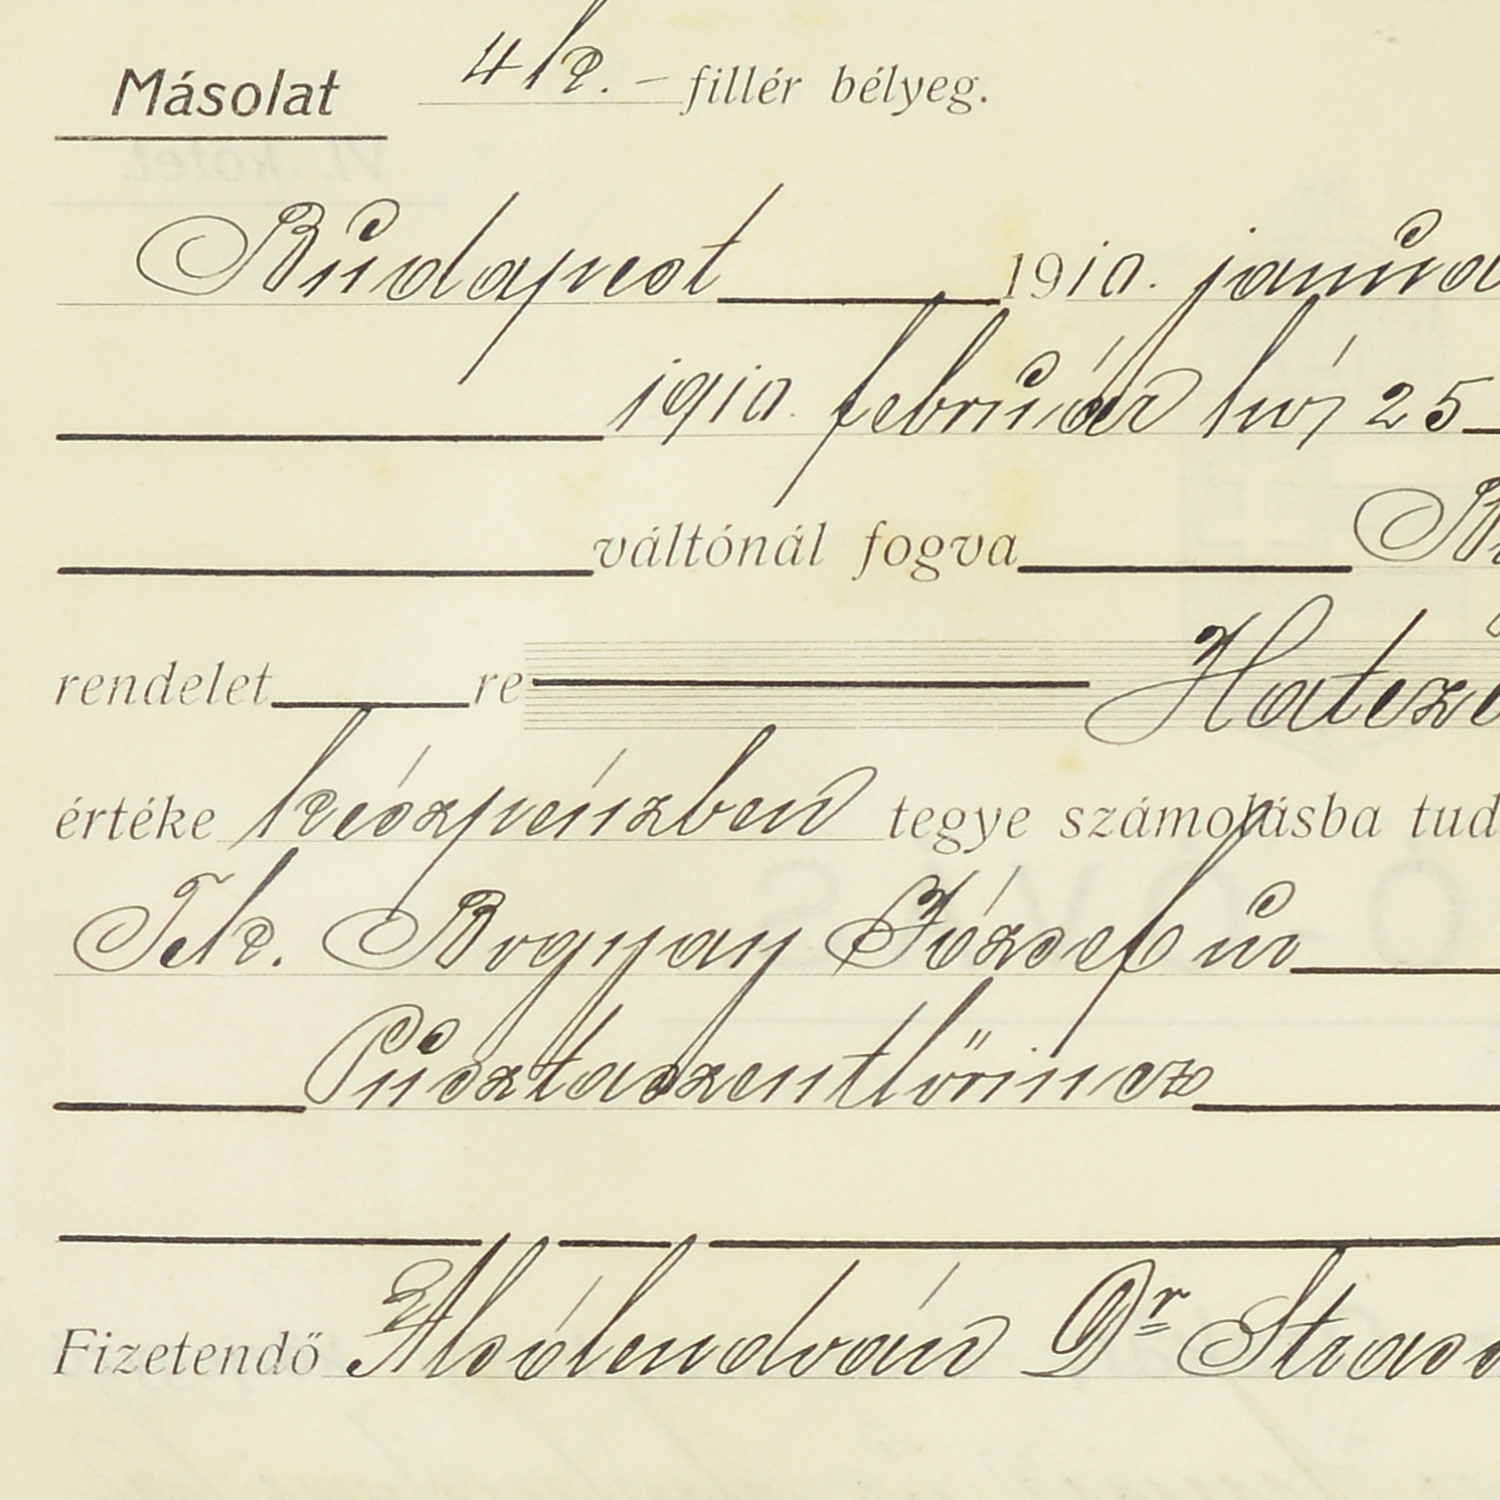 Másolat 4 k. – fillér bélyeg.
Budapest 1910. januá
1910. február hó 25
váltónál fogva
rendelet re Hatszá
értéke készpénzben tegye számolásba tud
Tek. Bogyay József úr
Pusztaszentlőrincz
Fizetendő Alsólendván Dr Strass